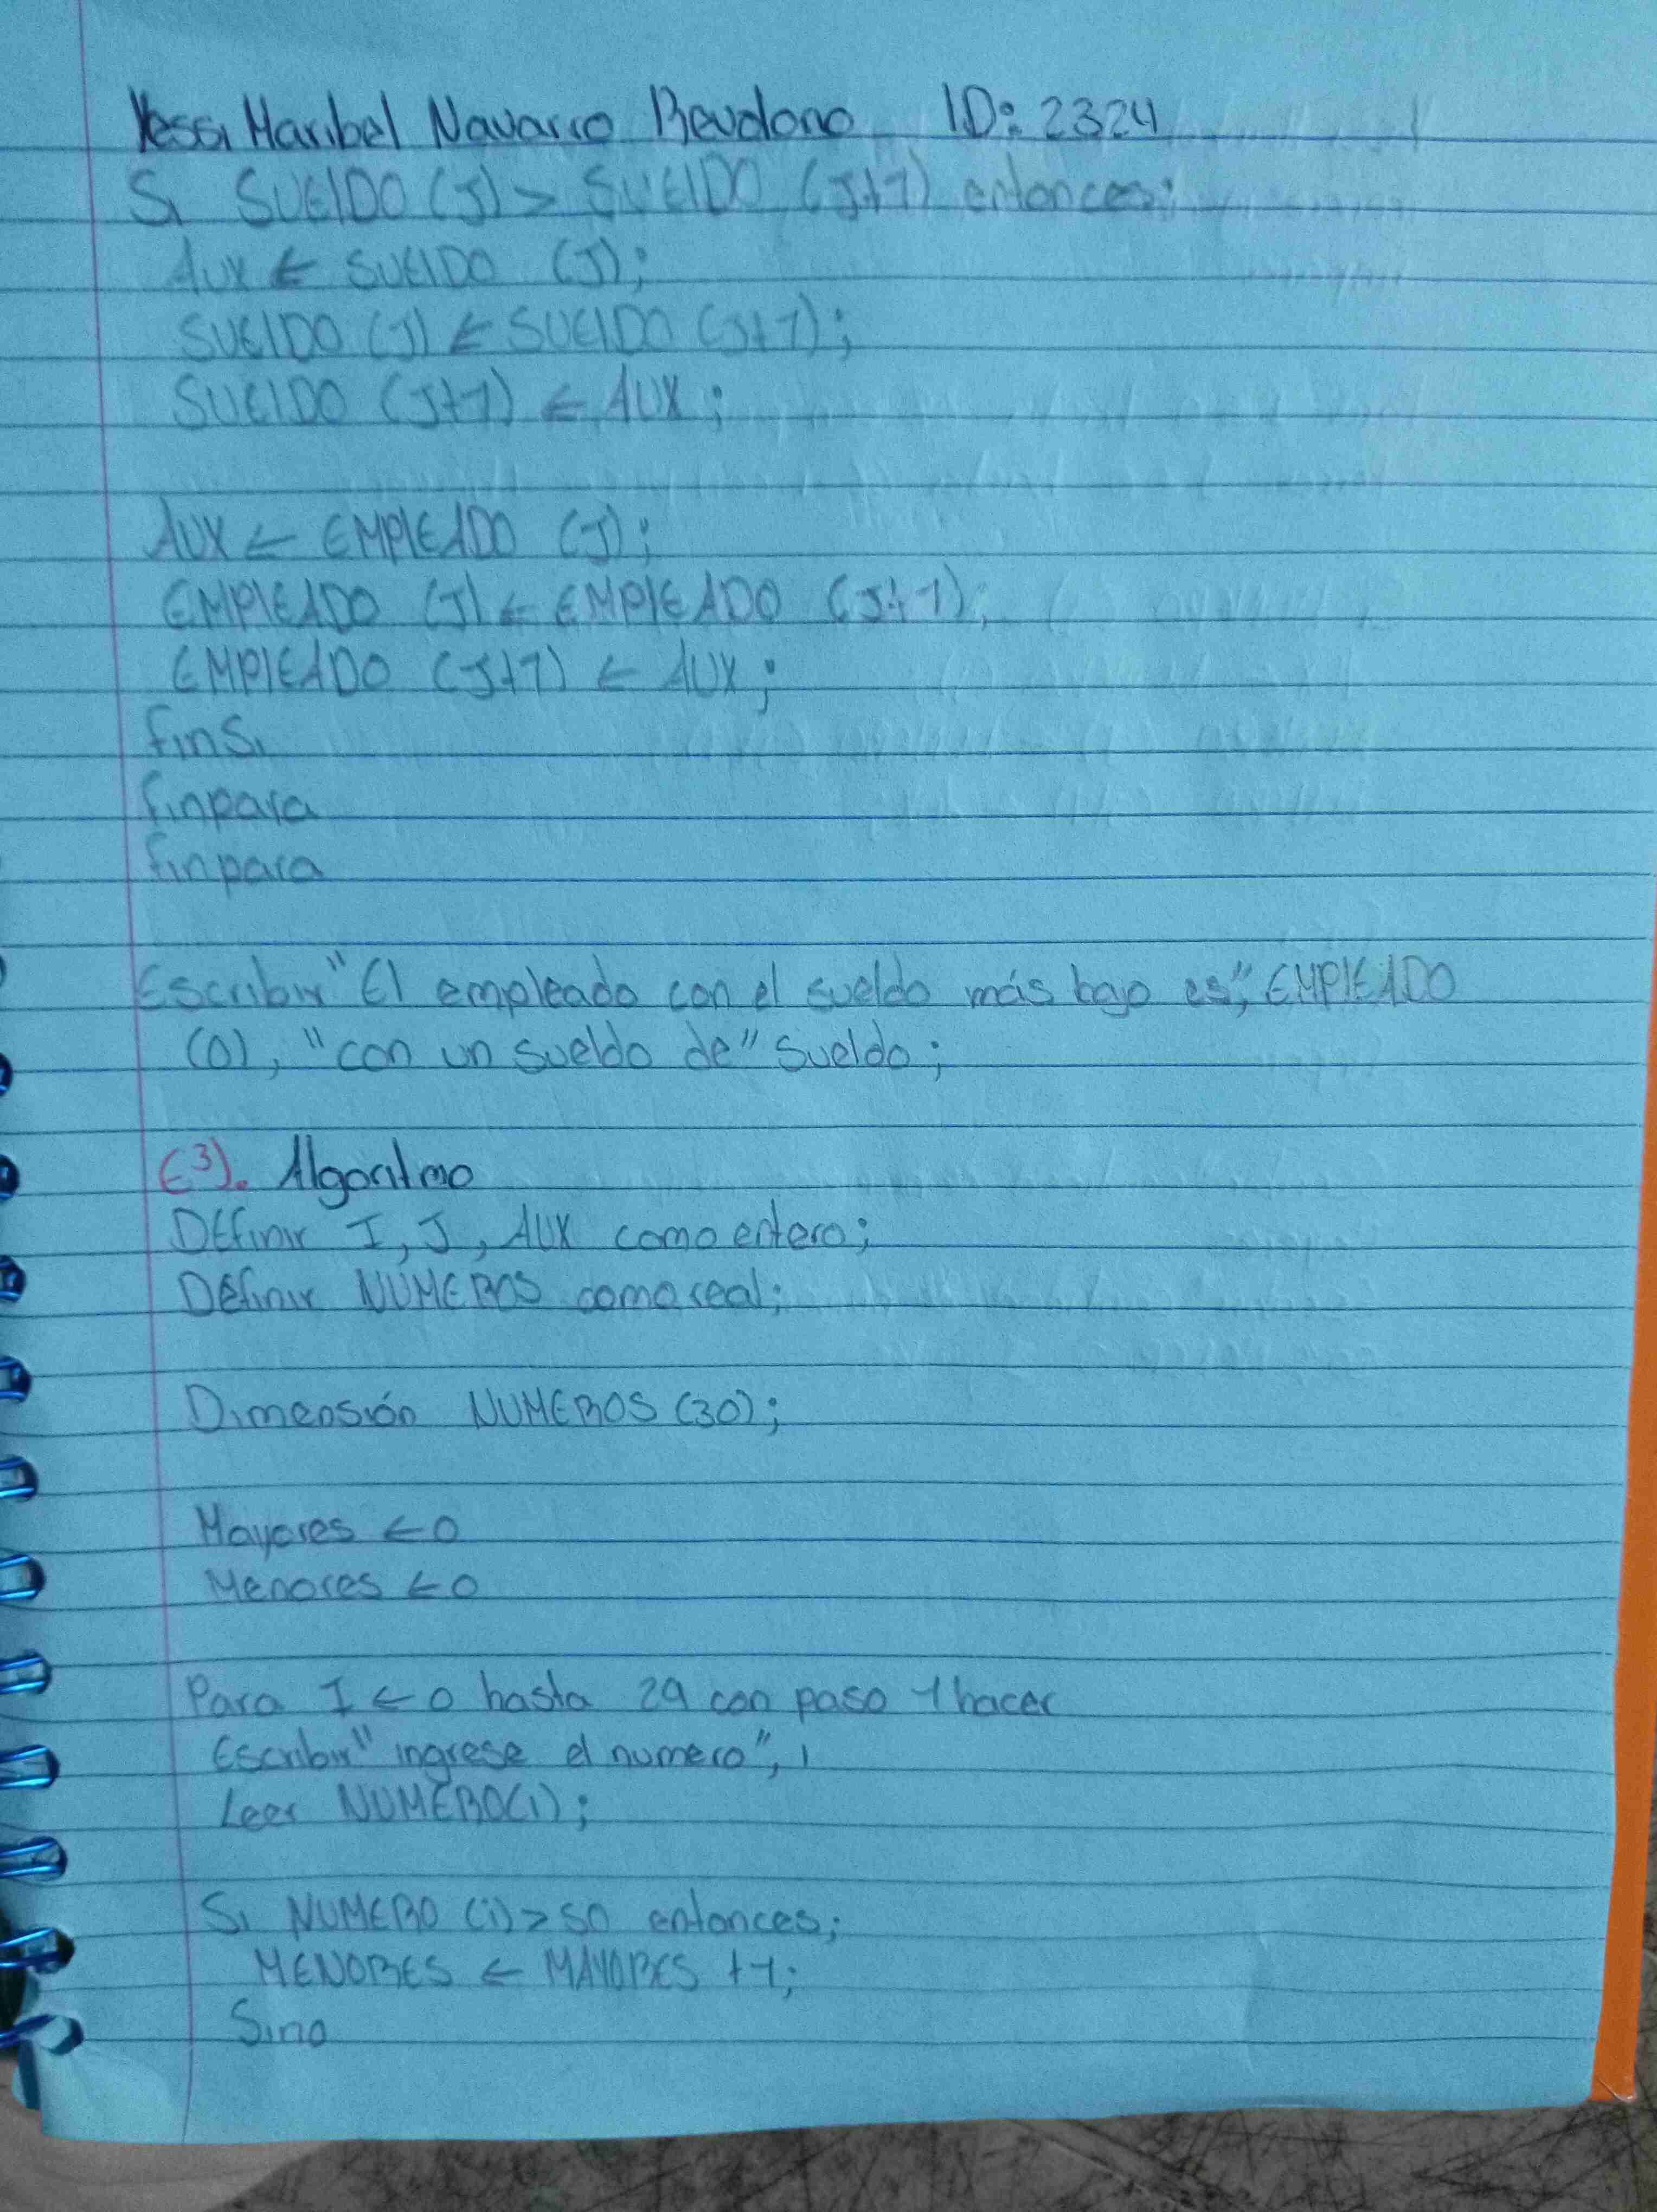 Yessi Maribel Navarro Rendono ID: 2324
Si SUEIDO (J) > SUEIDO (J+1) entonces;
AUX ← SUEIDO (J);
SUEIDO (J) ← SUEIDO (J+1);
SUEIDO (J+1) ← AUX;
AUX ← EMPIEADO (J);
EMPIEADO (J) ← EMPIEADO (J+1);
EMPIEADO (J+1) ← AUX;
finsi
finpara
finpara
Escribir "El empleado con el sueldo más bajo es", EMPIEADO
(0), "con un sueldo de" sueldo;
E3). Algoritmo
Definir I, J, AUX como entero;
Definir NUMEROS como real;
Dimensión NUMEROS (30);
Mayores ← 0
Menores ← 0
Para I ← 0 hasta 29 con paso 1 hacer
Escribir "ingrese el numero", i
Leer NUMERO(i);
Si NUMERO (i) > 50 entonces;
MENORES ← MAYORES +1;
Sino